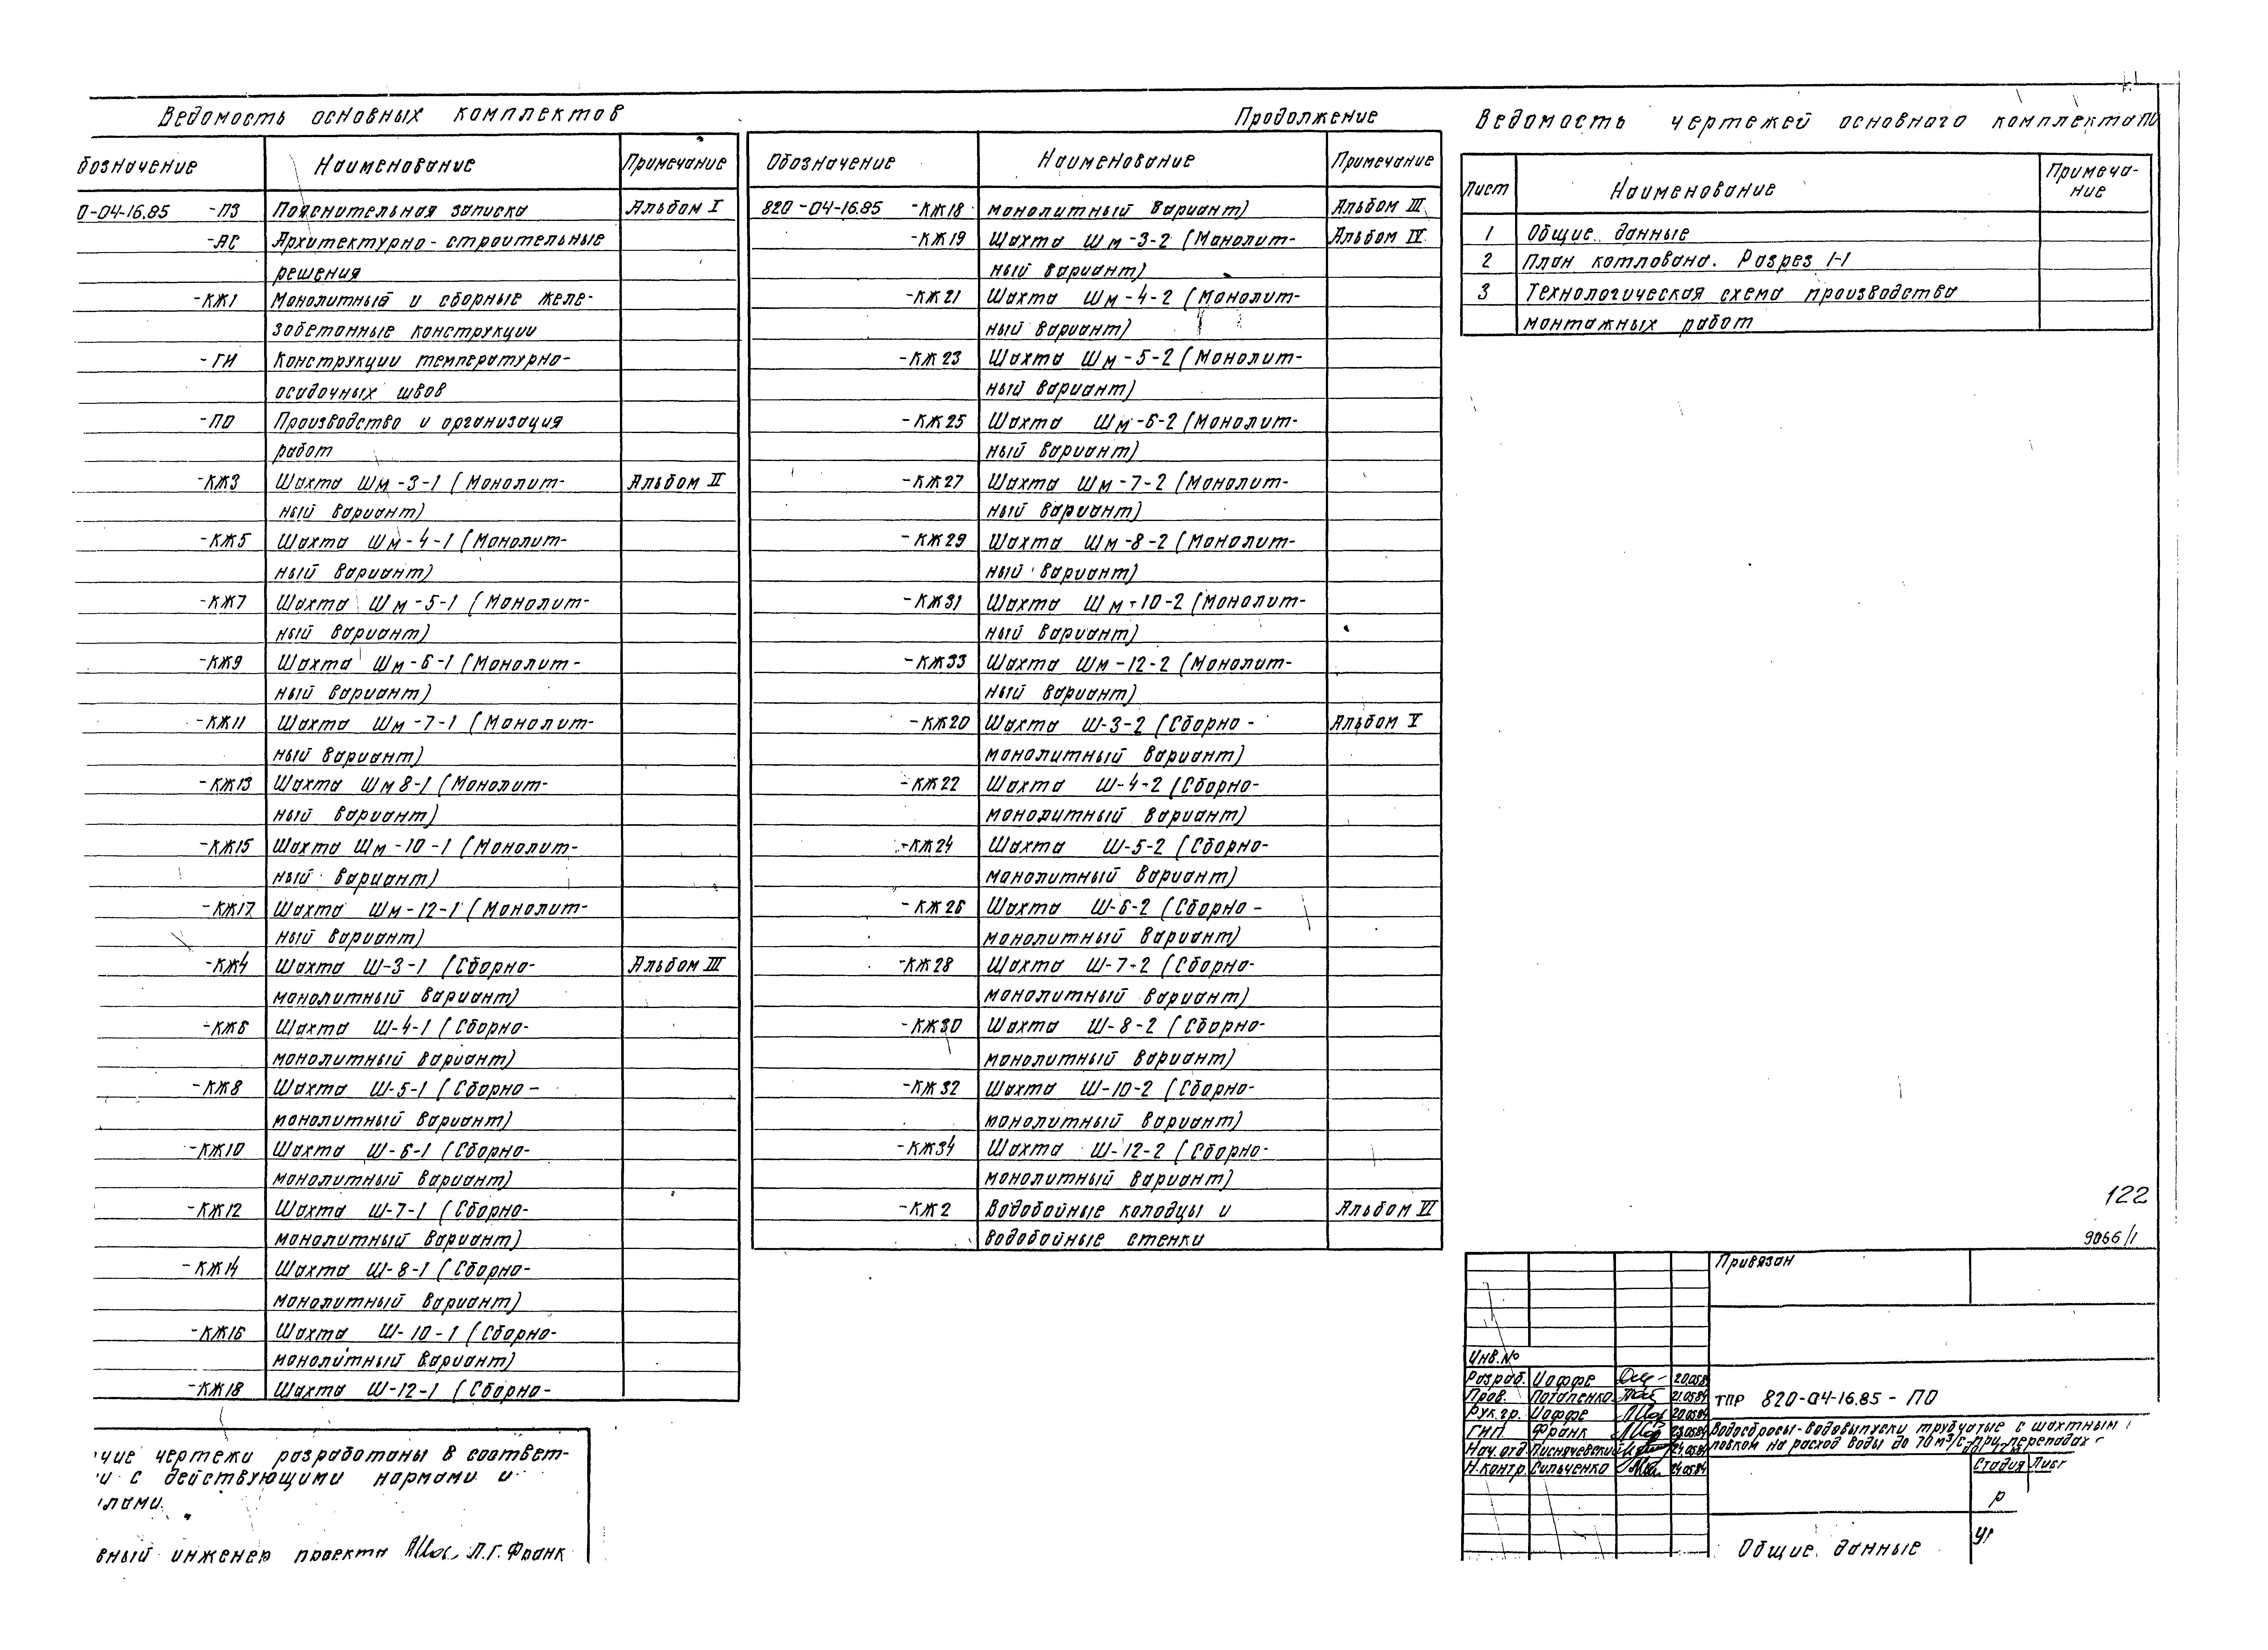 Ведомость основных комплектов
бозначение Наименование Примечание
0-04-16.85 -ПЗ Пояснительная записка Альбом I
-АС Архитектурно-строительные
решения
-КЖ1 Монолитный и сборные желе-
зобетонные конструкции
-ГИ Конструкции температурно-
осадочных швов
-ПО Производство и организация
работ
-КЖ3 Шахта Шм-3-1 (Монолит- Альбом II
ный вариант)
-КЖ5 Шахта Шм-4-1 (Монолит-
ный вариант)
-КЖ7 Шахта Шм-5-1 (Монолит-
ный вариант)
-КЖ9 Шахта Шм-6-1 (Монолит-
ный вариант)
-КЖ11 Шахта Шм-7-1 (Монолит-
ный вариант)
-КЖ13 Шахта Шм 8-1 (Монолит-
ный вариант)
-КЖ15 Шахта Шм-10-1 (Монолит-
ный вариант)
-КЖ17 Шахта Шм-12-1 (Монолит-
ный вариант)
-КЖ4 Шахта Ш-3-1 (Сборно- Альбом III
монолитный вариант)
-КЖ6 Шахта Ш-4-1 (Сборно-
монолитный вариант)
-КЖ8 Шахта Ш-5-1 (Сборно-
монолитный вариант)
-КЖ10 Шахта Ш-6-1 (Сборно-
монолитный вариант)
-КЖ12 Шахта Ш-7-1 (Сборно-
монолитный вариант)
-КЖ14 Шахта Ш-8-1 (Сборно-
монолитный вариант)
-КЖ16 Шахта Ш-10-1 (Сборно-
монолитный вариант)
-КЖ18 Шахта Ш-12-1 (Сборно-
чие чертежи разработаны в соответ-
и с действующими нормами и
лами.
вный инженер проекта Л.Г.Франк
Продолжение
Обозначение Наименование Примечание
820-04-16.85 -КЖ18 монолитный вариант) Альбом III
-КЖ19 Шахта Шм-3-2 (Монолит- Альбом IV
ный вариант)
-КЖ21 Шахта Шм-4-2 (Монолит-
ный вариант)
-КЖ23 Шахта Шм-5-2 (Монолит-
ный вариант)
-КЖ25 Шахта Шм-6-2 (Монолит-
ный вариант)
-КЖ27 Шахта Шм-7-2 (Монолит-
ный вариант)
-КЖ29 Шахта Шм-8-2 (Монолит-
ный вариант)
-КЖ31 Шахта Шм-10-2 (Монолит-
ный вариант)
-КЖ33 Шахта Шм-12-2 (Монолит-
ный вариант)
-КЖ20 Шахта Ш-3-2 (Сборно- Альбом V
монолитный вариант)
-КЖ22 Шахта Ш-4-2 (Сборно-
монолитный вариант)
-КЖ24 Шахта Ш-5-2 (Сборно-
монолитный вариант)
-КЖ26 Шахта Ш-6-2 (Сборно-
монолитный вариант)
-КЖ28 Шахта Ш-7-2 (Сборно-
монолитный вариант)
-КЖ30 Шахта Ш-8-2 (Сборно-
монолитный вариант)
-КЖ32 Шахта Ш-10-2 (Сборно-
монолитный вариант)
-КЖ34 Шахта Ш-12-2 (Сборно-
монолитный вариант)
-КЖ2 Водобойные колодцы и Альбом VI
водобойные стенки
Ведомость чертежей основного комплекта ПО
Лист Наименование Примеча-
ние
1 Общие данные
2 План котлована. Разрез 1-1
3 Технологическая схема производства
монтажных работ
122
9066/1
Привязан
Инв.№
Разраб. Иоффе 20.05.84
Пров. Потапенко 21.05.84
Рук.гр. Иоффе 20.05.84
ГИП Франк 23.05.84
Нач.отд 24.05.84
Н.контр. Сильченко 24.05.84
ТПР 820-04-16.85-ПО
Водосбросы-водовыпуски трубчатые с шахтным
ловком на расход воды до 70 м³/с при перепадах
Стадия Лист
Р
Общие данные